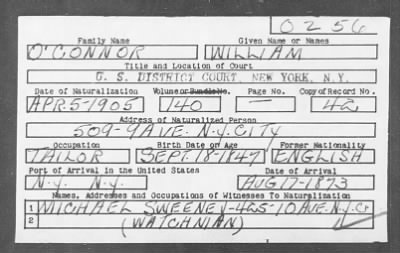 O 256
Family Name Given Name or Names
O'CONNOR WILLIAM
Title and Location of Court
U. S. DISTRICT COURT, NEW YORK, N.Y.
Date of Naturalization Volume or Bundle No. Page No. Copy of Record No.
APR. 5-1905 140 — 42
Address of Naturalized Person
509-9 AVE. N.Y. CITY
Occupation Birth Date or Age Former Nationality
TAILOR SEPT. 18-1847 ENGLISH
Port of Arrival in the United States Date of Arrival
N.Y. N.Y. AUG 17-1873
Names, Addresses and Occupations of Witnesses To Naturalization
1 MICHAEL SWEENEY-425-10 AVE. N.Y. Cy
2 (WATCHMAN)